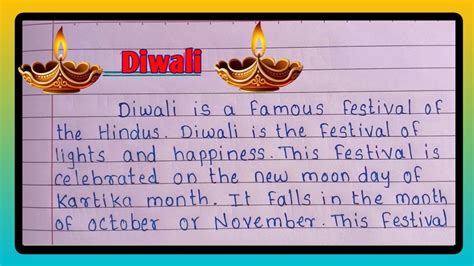 Diwali
Diwali is a famous festival of
the Hindus. Diwali is the festival of
lights and happiness. This festival is
celebrated on the new moon day of
Kartika month. It falls in the month
of october or November. This festival